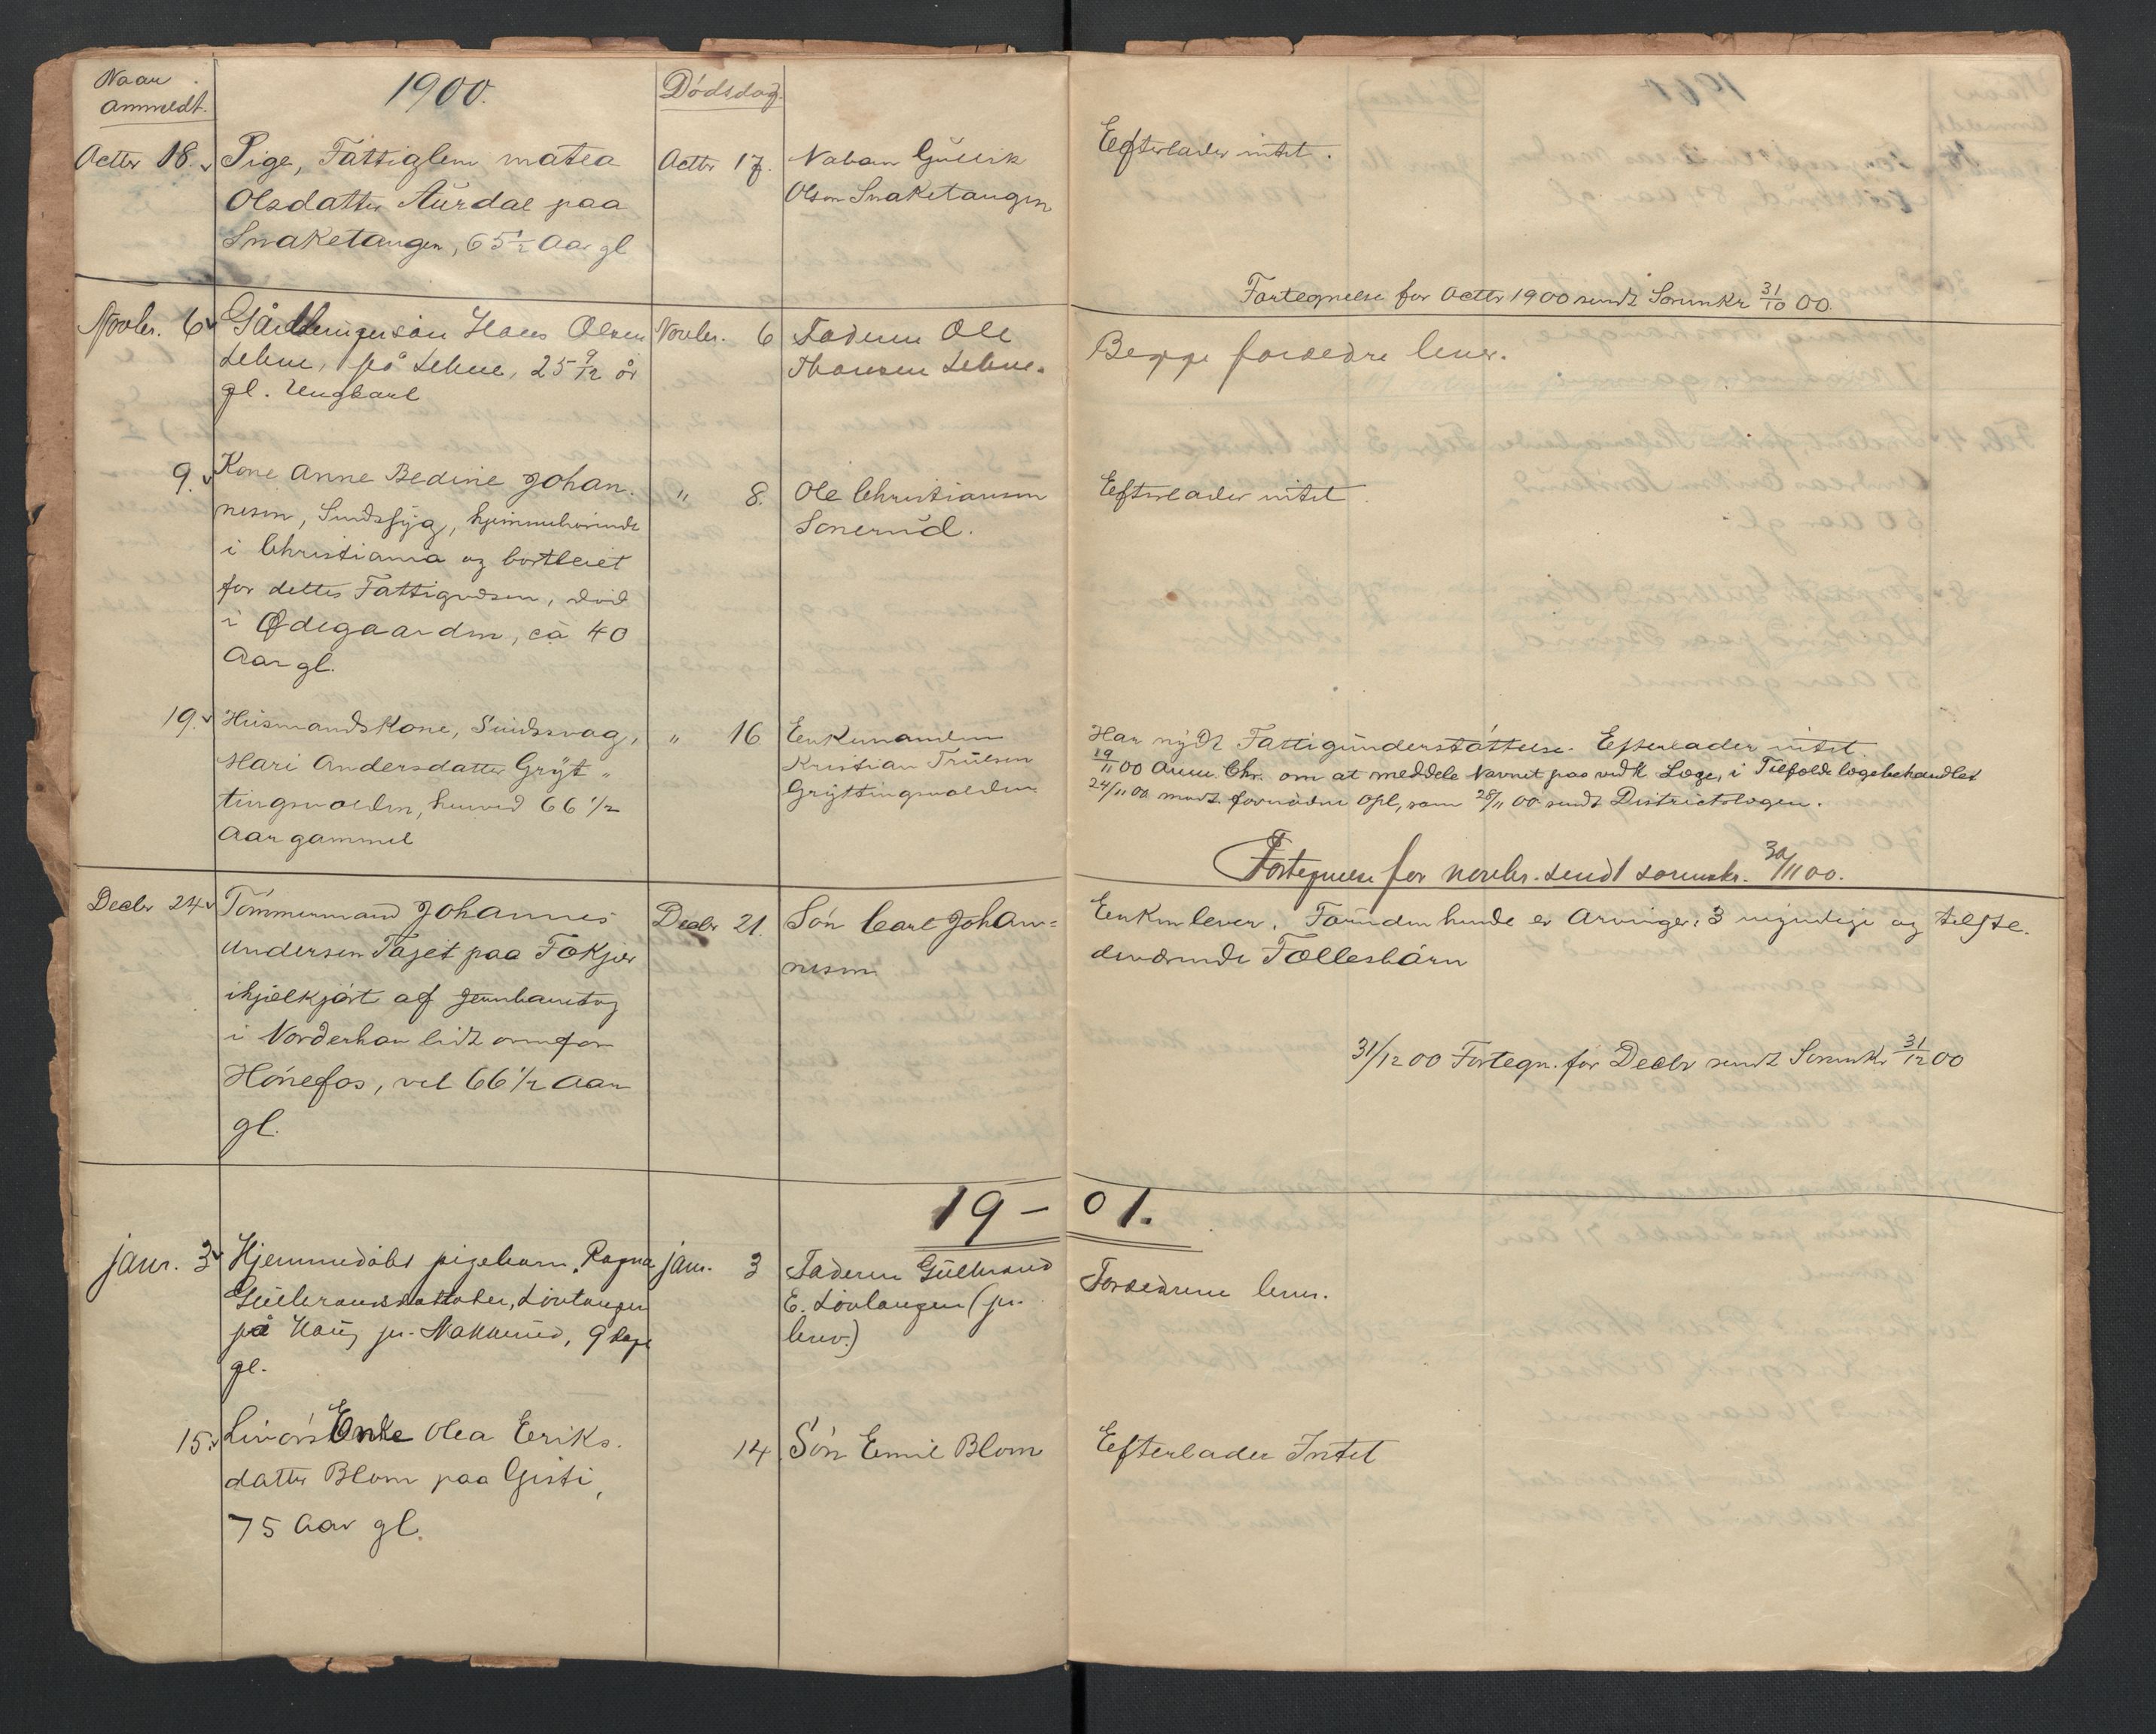 Naar
anmeldt.
1900.
Dödsdag.
Octbr 18.
Pige, Fattiglem Matea
Olsdatter Aurdal paa
Snaketangen, 65 1/2 Aar gl
Octbr 17.
Naboen Gullik
Olsen Snaketangen
Efterlader intet.
Fortegnelse for Octbr 1900 sendt Sorenskr 31/10 00.
Novbr. 6
Gårdbrugersön Hans Olsen
Lehne, på Lehne, 25 9/12 år
gl. Ungkarl
Novbr. 6
Faderen Ole
Lehne.
Begge forældre lever.
9.
Kone Anne Bedine Johan-
nesen, Sindssyg, hjemmehørende
i Christiania og bortleiet
for dettes Fattigvæsen, död
i Ødegaarden, ca 40
Aar gl.
" 8.
Ole Christiansen
Sonerud.
Efterlader intet.
19.
Husmandskone, Sindssvag,
Mari Andersdatter Gryt-
tingsvolden, henved 66 1/2
Aar gammel
" 16
Enkemanden
Kristian Trulsen
Gryttingsvolden
Har nydt Fattigunderstöttelse. Efterlader intet.
19/11 00 Anm. Chr. om at meddele Navnet paa vedk Læge, i Tilfælde lægebehandlet
24/11 00 modt. fornödne Opl, som 28/11 00 sendt Districtslægen.
Fortegnelse for novbr. sendt sorenskr. 30/11 00.
Decbr 24
Tömmermand Johannes
Andersen Taget paa Fokjær
ihjelkjört af Jernbanetog
i Norderhov lidt ovenfor
Hönefos, vel 66 1/2 Aar
gl.
Decbr 21.
Sön Carl Johan=
nesen
Enken lever. Foruden hende er Arvinger: 3 myndige og tilste-
deværende Fællesbörn
31/12 00 Fortegn. for Decbr sendt Sorenskr 31/12 00
19 – 01.
janr. 3
Hjemmedöbt pigebarn, Ragna
Gulbrandsdatter, Lövlangen
på Haug pr. Nakkerud, 9 dage
gl.
janr. 3
Faderen Gulbrand
E. Lövlangen (pr.
brev.)
Forældrene lever.
15.
Enke Olea Eriks-
datter Blom paa Gjesti,
75 Aar gl.
14
Sön Emil Blom
Efterlader Intet